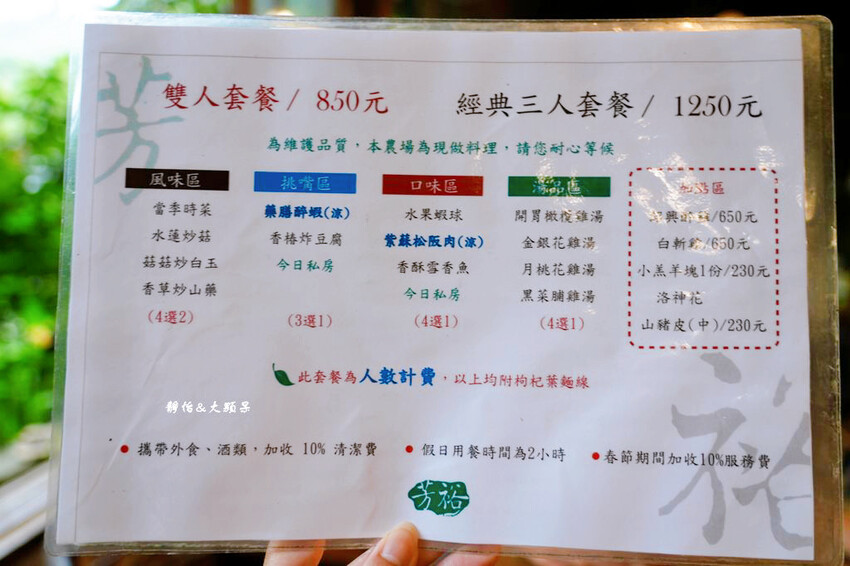 芳
雙人套餐/ 850元
經典三人套餐/ 1250元
為維護品質，本農場為現做料理，請您耐心等候
風味區
當季時菜
水蓮炒菇
菇菇炒白玉
香草炒山藥
(4選2)
挑嘴區
藥膳醉蝦(涼)
香椿炸豆腐
今日私房
(3選1)
口味區
水果蝦球
紫蘇松阪肉(涼)
香酥雪香魚
今日私房
(4選1)
湯品區
開胃橄欖雞湯
金銀花雞湯
月桃花雞湯
黑菜脯雞湯
(4選1)
加點區
紹興醉雞/650元
白斬雞/650元
小羔羊塊1份/230元
洛神花
山豬皮(中)/230元
此套餐為人數計費，以上均附枸杞葉麵線
靜怡&大顆呆
● 攜帶外食、酒類，加收 10% 清潔費
● 假日用餐時間為2小時
●春節期間加收10%服務費
芳裕
裕